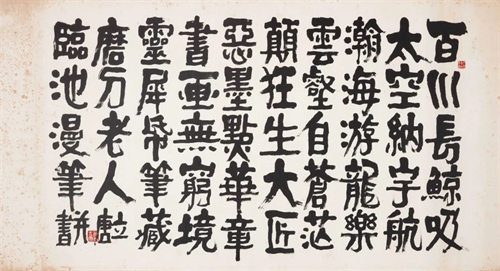 百川長鯨吸
太空納宇航
瀚海游龍樂
雲壑自蒼茫
顛狂生大匠
惡墨點華章
書画無窮境
靈犀帋筆藏
磨刀老人
臨池漫筆